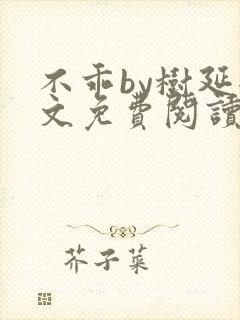 不乖by樹延
文免費閱讀
芥子菜